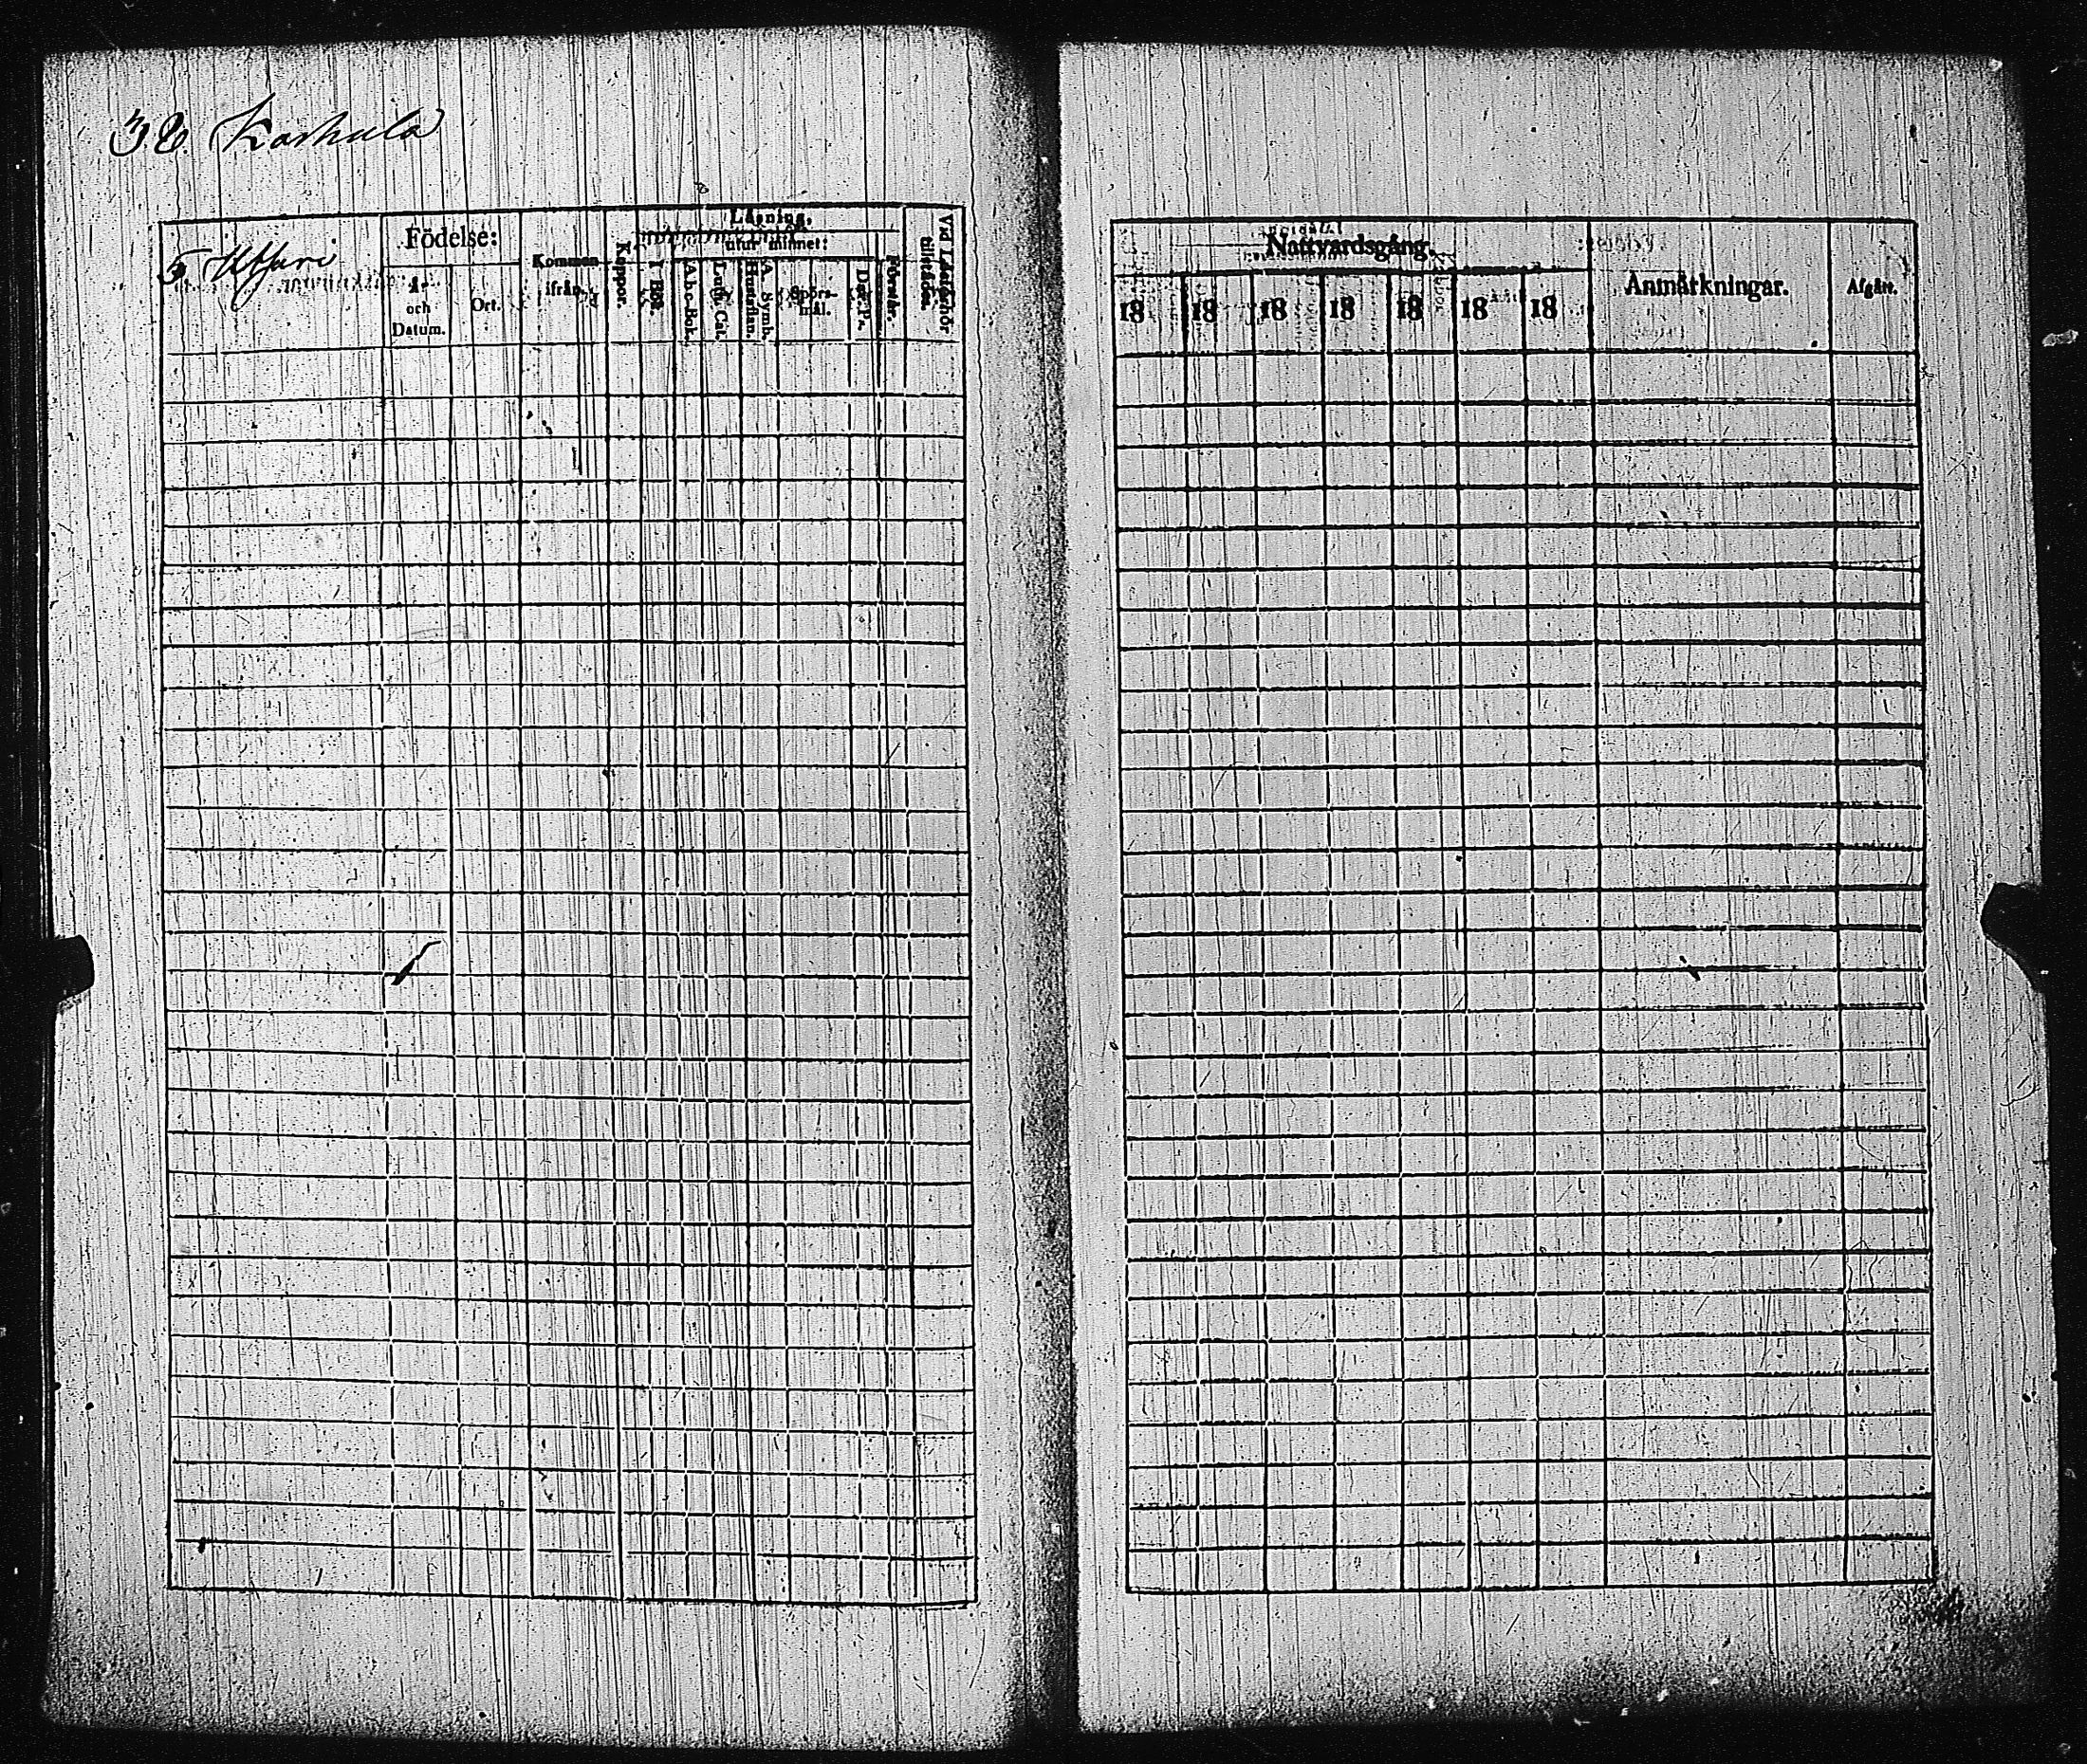 38. Karhula
5 Uttari
Födelse:
År
och
Datum.
Ort.
Kommen
ifrån.
Koppor.
Läsning,
I Bok.
utur minnet:
A.b.c-Bok.
Luth. Cat.
Hustaflan.
A. Symb.
Spörs-
mål.
Dav. Ps.
Förstår.
Vid Läseförhör
tillstädes.
Nattvardsgång.
18 18 18 18 18 18 18
Anmärkningar.
Afgått.